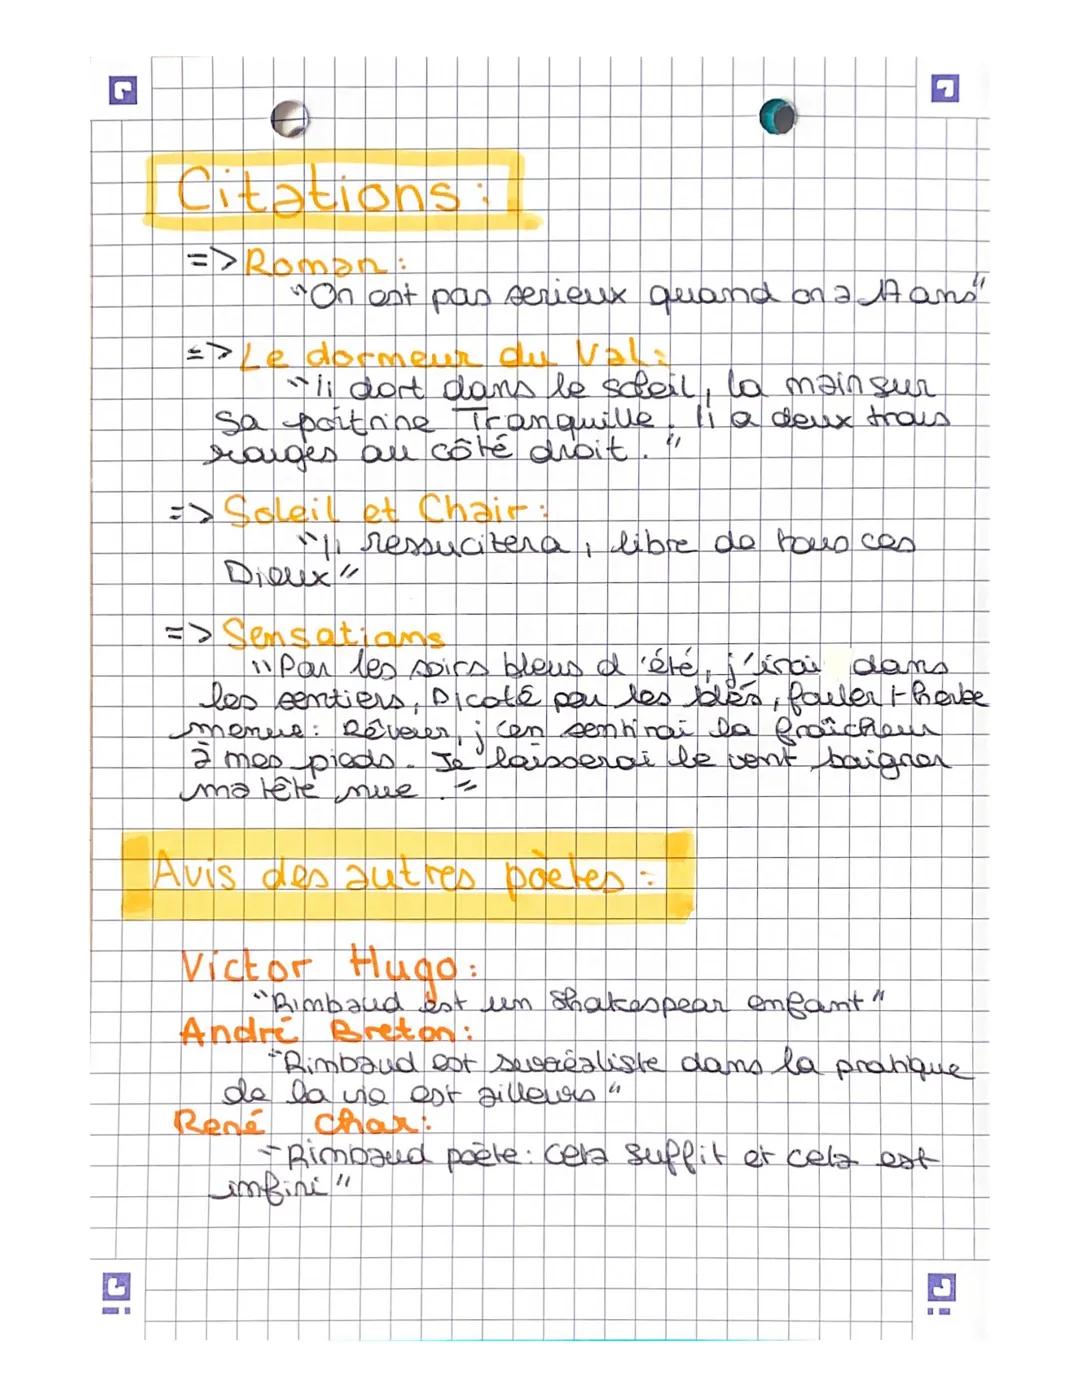 Citations :
=> Roman :
"On est pas serieux quand on a 17 ans"
=> Le dormeur du Val :
"il dort dans le soleil, la main sur
sa poitrine Tranquille. Il a deux trous
rouges au côté droit. "
=> Soleil et Chair :
"Il ressucitera, libre de tous ces
Dieux"
=> Sensations
"Par les soirs bleus d'été, j'irai dans
les sentiers, Picoté par les blés, fouler l'herbe
menue : Rêveur, j'en sentirai la fraîcheur
à mes pieds. Je laisserai le vent baigner
ma tête nue. "
Avis des autres poètes :
Victor Hugo :
"Rimbaud est un Shakespear enfant"
André Breton :
"Rimbaud est surréaliste dans la pratique
de la vie est ailleurs"
René Char :
"Rimbaud poète : cela suffit et cela est
infini"